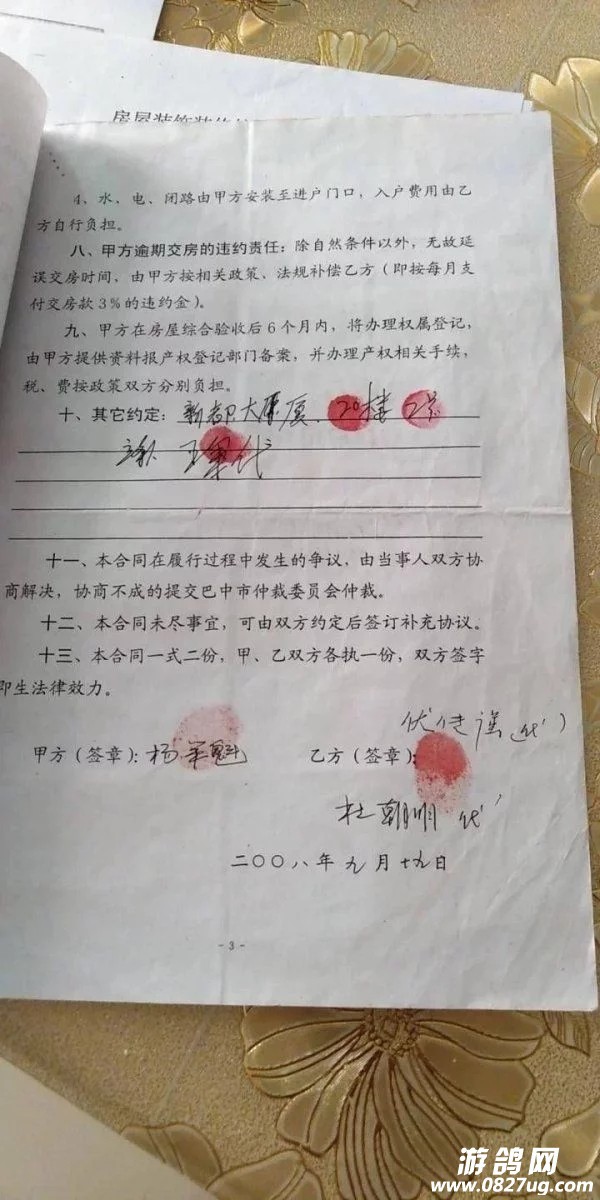 房屋装饰装修
4、水、电、闭路由甲方安装至进户门口，入户费用由乙
方自行负担。
八、甲方逾期交房的违约责任：除自然条件以外，无故延
误交房时间，由甲方按相关政策、法规补偿乙方（即按每月支
付交房款3%的违约金）。
九、甲方在房屋综合验收后6个月内，将办理权属登记，
由甲方提供资料报产权登记部门备案，并办理产权相关手续，
税、费按政策双方分别负担。
十、其它约定：新都大厦、20楼2号
十一、本合同在履行过程中发生的争议，由当事人双方协
商解决，协商不成的提交巴中市仲裁委员会仲裁。
十二、本合同未尽事宜，可由双方约定后签订补充协议。
十三、本合同一式二份，甲、乙双方各执一份，双方签字
即生法律效力。
甲方（签章）：杨 魁 乙方（签章）：
杜朝明 代
二〇〇八年九月十九日
- 3 -
游鸽网
www.0827ug.com